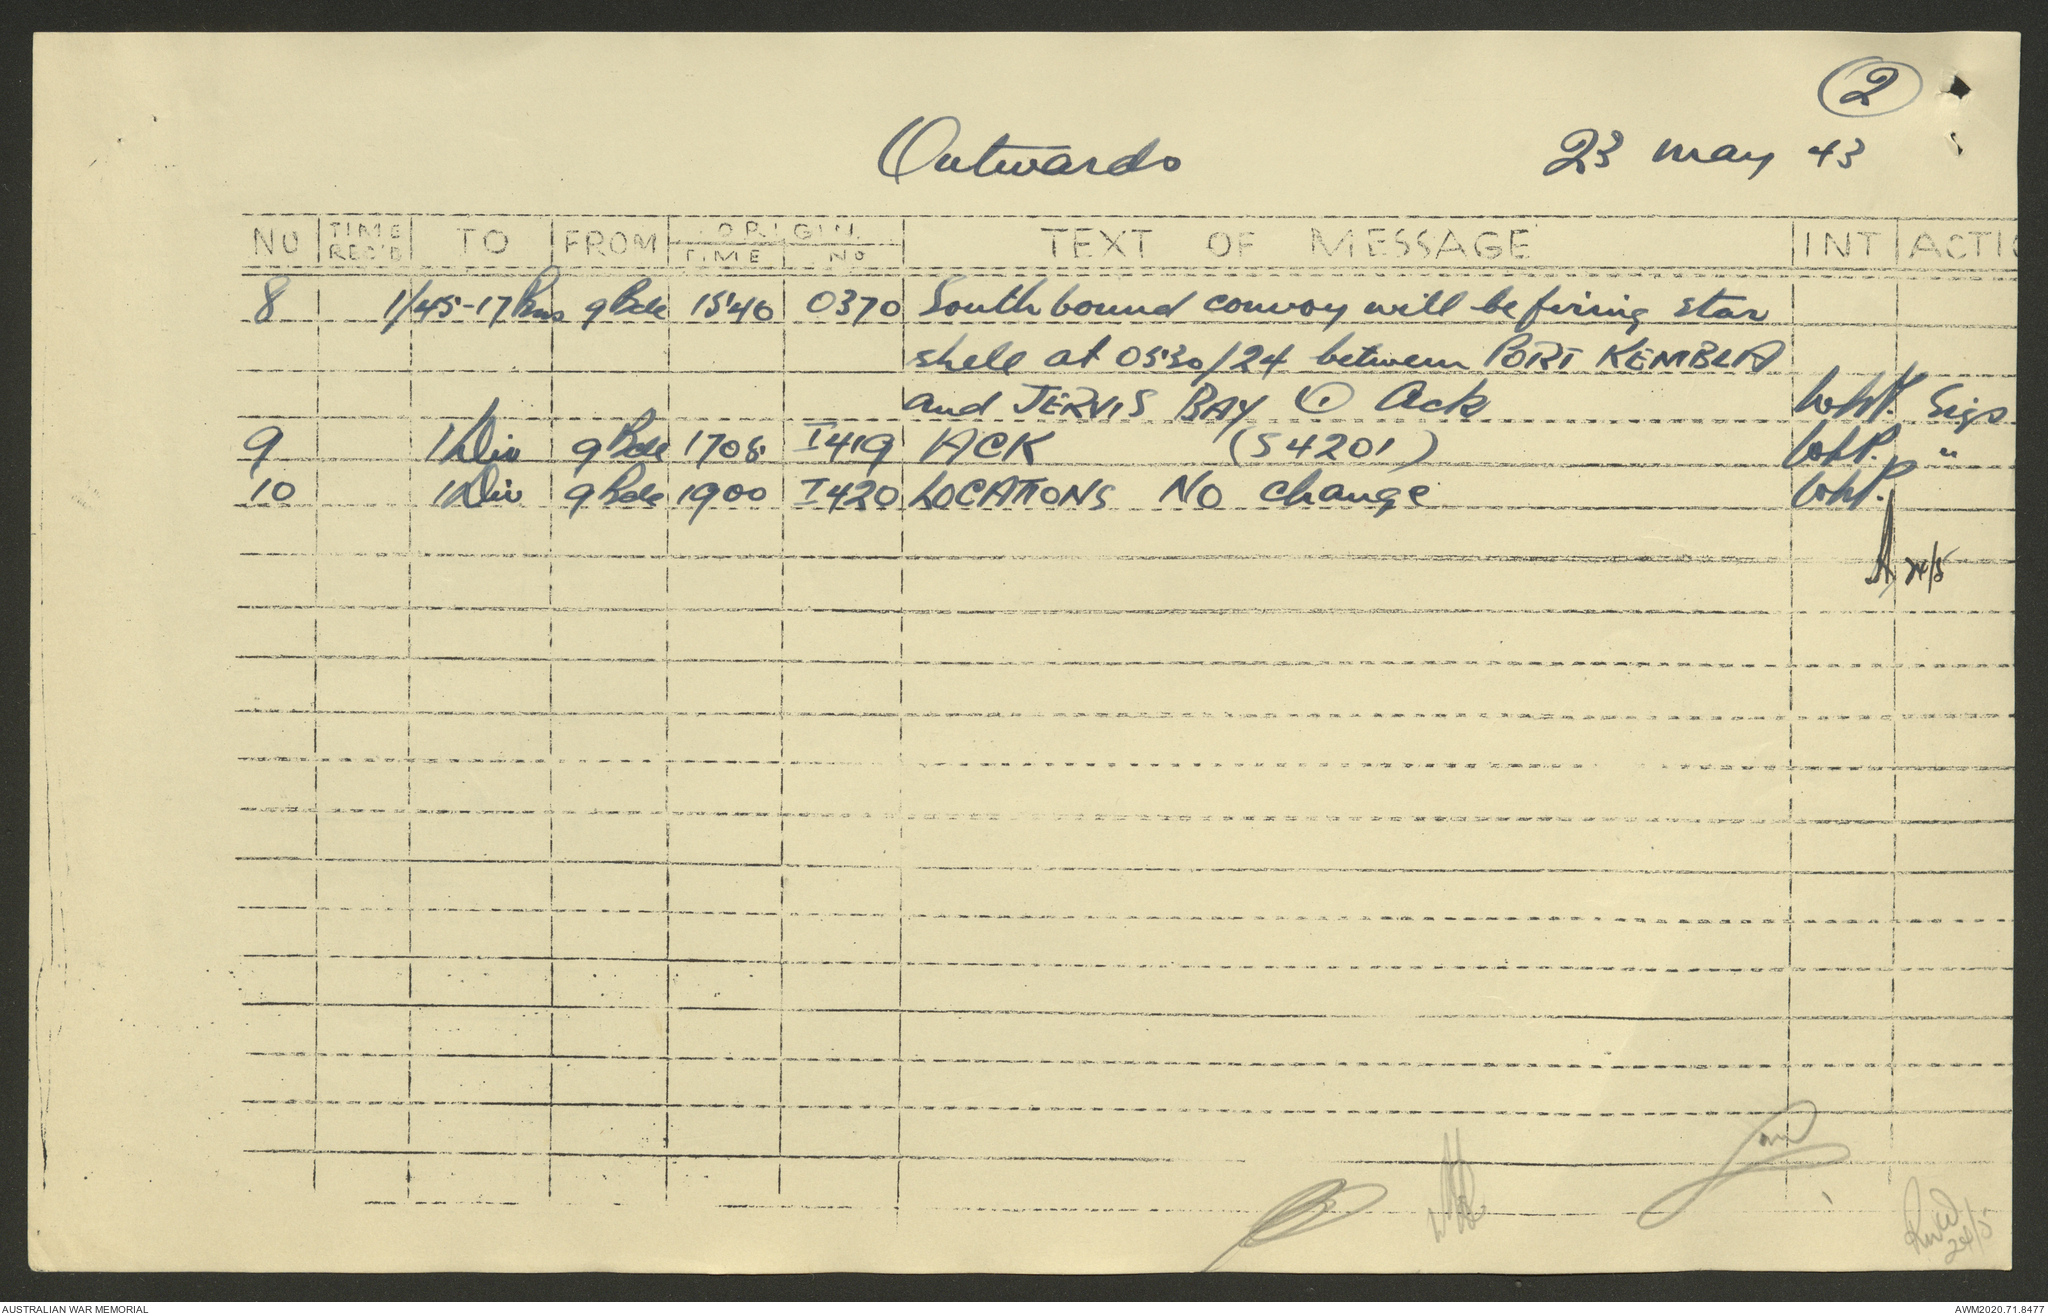 2
Outwards 23 May 43
NO TIME REC'D TO FROM ORIGIN TIME NO TEXT OF MESSAGE INT ACTIO
8 1/45-17 Bns 9 Bde 1540 0370 South bound convoy will be firing star
shell at 0530/24 between PORT KEMBLA
and JERVIS BAY Ⓣ Ack WHP. Sigs
9 1 Div 9 Bde 1705 I419 ACK (S4201) WHP. "
10 1 Div 9 Bde 1900 I420 LOCATIONS NO change WHP.
24/5
24/5
AUSTRALIAN WAR MEMORIAL AWM2020.71.8477